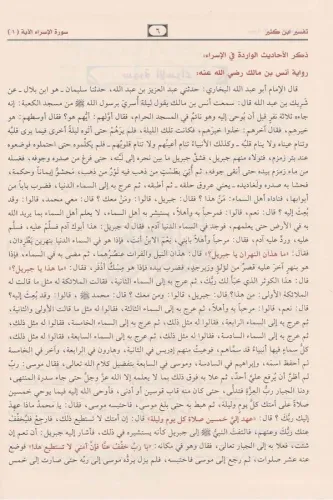 تفسير ابن كثير
٦
سورة الإسراء الآية (١)
ذكر الأحاديث الواردة في الإسراء:
رواية أنس بن مالك رضي الله عنه:
قال الإمام أبو عبد الله البخاري: حدثني عبد العزيز بن عبد الله، حدثنا سليمان ـ هو ابن بلال ـ عن
شريك بن عبد الله قال: سمعت أنس بن مالك يقول ليلة أسري برسول الله ﷺ من مسجد الكعبة: إنه
جاءه ثلاثة نفر قبل أن يوحى إليه وهو نائم في المسجد الحرام، فقال أولهم: أيهم هو؟ فقال أوسطهم: هو
خيرهم، فقال آخرهم: خذوا خيرهم، فكانت تلك الليلة، فلم يرهم حتى أتوه ليلة أخرى فيما يرى قلبه
وتنام عيناه ولا ينام قلبه ـ وكذلك الأنبياء تنام أعينهم ولا تنام قلوبهم ـ فلم يكلموه حتى احتملوه فوضعوه
عند بئر زمزم، فتولاه منهم جبريل، فشق جبريل ما بين نحره إلى لبته، حتى فرغ من صدره وجوفه، فغسله
من ماء زمزم بيده حتى أنقى جوفه، ثم أتي بطست من ذهب فيه تور من ذهب، محشو إيمانا وحكمة،
فحشا به صدره ولغاديده ـ يعني عروق حلقه ـ ثم أطبقه، ثم عرج به إلى السماء الدنيا، فضرب بابا من
أبوابها، فناداه أهل السماء: من هذا؟ فقال: جبريل، قالوا: ومن معك؟ قال: معي محمد، قالوا: وقد
بعث إليه؟ قال: نعم، قالوا: فمرحبا به وأهلا، يستبشر به أهل السماء، لا يعلم أهل السماء بما يريد الله
به في الأرض حتى يعلمهم، فوجد في السماء الدنيا آدم، فقال له جبريل: هذا أبوك آدم فسلم عليه، فسلم
عليه، ورد عليه آدم، فقال: مرحبا وأهلا بابني، نعم الابن أنت، فإذا هو في السماء الدنيا بنهرين يطردان،
فقال: «ما هذان النهران يا جبريل؟» قال: هذان النيل والفرات عنصرهما، ثم مضى به في السماء، فإذا
هو بنهر آخر عليه قصر من لؤلؤ وزبرجد، فضرب بيده فإذا هو مسك أذفر، فقال: «ما هذا يا جبريل؟»
قال: هذا الكوثر الذي خبأ لك ربك، ثم عرج به إلى السماء الثانية، فقالت الملائكة له مثل ما قالت له
الملائكة الأولى: من هذا؟ قال: جبريل، قالوا: ومن معك؟ قال: محمد ﷺ، قالوا: وقد بعث إليه؟
قال: نعم، قالوا: مرحبا به وأهلا، ثم عرج به إلى السماء الثالثة، فقالوا له مثل ما قالت الأولى والثانية،
ثم عرج به إلى السماء الرابعة، فقالوا له مثل ذلك، ثم عرج به إلى السماء الخامسة، فقالوا له مثل ذلك،
ثم عرج به إلى السماء السادسة، فقالوا له مثل ذلك، ثم عرج به إلى السماء السابعة، فقالوا له مثل ذلك،
كل سماء فيها أنبياء قد سماهم، فوعيت منهم إدريس في الثانية، وهارون في الرابعة، وآخر في الخامسة
لم أحفظ اسمه، وإبراهيم في السادسة، وموسى في السابعة بتفضيل كلام الله تعالى، فقال موسى: رب
لم أظن أن يرفع علي أحد، ثم علا به فوق ذلك بما لا يعلمه إلا الله عز وجل حتى جاء سدرة المنتهى،
ودنا الجبار رب العزة فتدلى، حتى كان منه قاب قوسين أو أدنى، فأوحى الله إليه فيما يوحي خمسين
صلاة على أمتك كل يوم وليلة، ثم هبط به حتى بلغ موسى، فاحتبسه موسى، فقال: يا محمد ماذا عهد
إليك ربك؟ قال: «عهد إلي خمسين صلاة كل يوم وليلة» قال: إن أمتك لا تستطيع ذلك، فارجع فليخفف
عنك ربك وعنهم، فالتفت النبي ﷺ إلى جبريل كأنه يستشيره في ذلك، فأشار إليه جبريل: أن نعم إن
شئت، فعلا به إلى الجبار تعالى، فقال وهو في مكانه: «يا رب خفف عنا فإن أمتي لا تستطيع هذا» فوضع
عنه عشر صلوات، ثم رجع إلى موسى فاحتبسه، فلم يزل يردده موسى إلى ربه حتى صارت إلى خمس